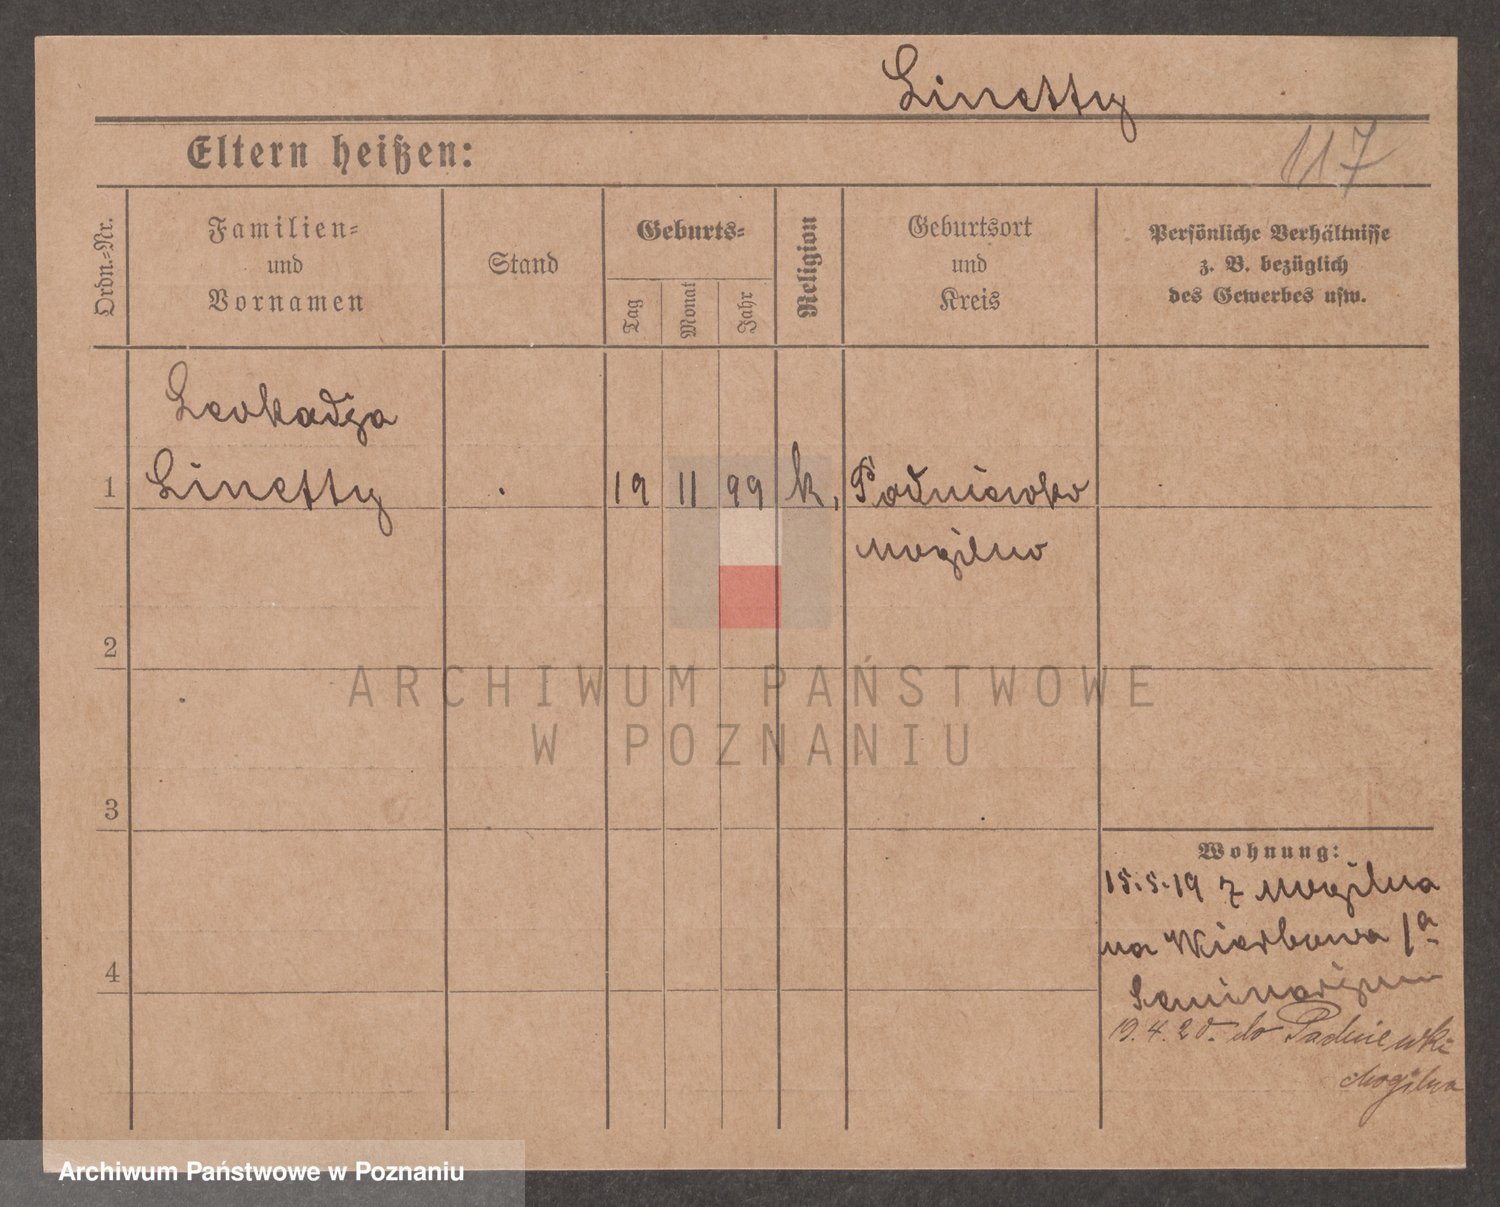 Linetty
117
Eltern heißen:
Ordn.-Nr.
Familien-
und
Vornamen
Stand
Geburts-
Tag
Monat
Jahr
Religion
Geburtsort
und
Kreis
Persönliche Verhältnisse
z. B. bezüglich
des Gewerbes usw.
Leokadja
1 Linetty 19 11 99 k, Padniewko
Mogilno
2
ARCHIWUM PAŃSTWOWE
W POZNANIU
3
Wohnung:
15.5.19 z Mogilna
na Wierbowa 1a
4
Seminarjum
19.4.20. do Padniewki
Mogilna
Archiwum Państwowe w Poznaniu